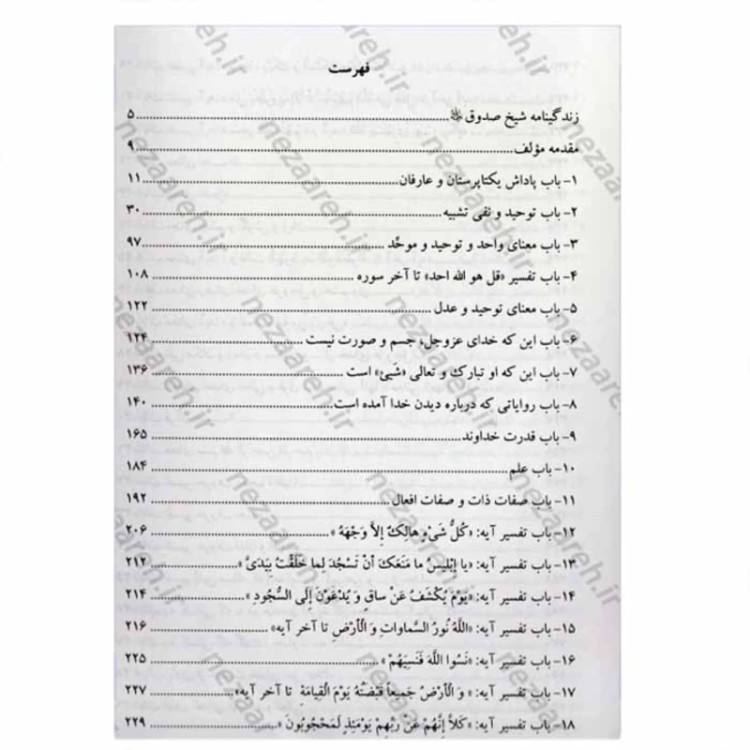 فهرست
زندگینامه شیخ صدوق ................ ۵
مقدمه مؤلف ................ ۹
۱- باب پاداش یکتاپرستان و عارفان ................ ۱۱
۲- باب توحید و نفی تشبیه ................ ۳۰
۳- باب معنای واحد و توحید و موحّد ................ ۹۷
۴- باب تفسیر «قل هو الله احد» تا آخر سوره ................ ۱۰۸
۵- باب معنای توحید و عدل ................ ۱۲۲
۶- باب این که خدای عزوجل، جسم و صورت نیست ................ ۱۲۴
۷- باب این که او تبارک و تعالی «شَیئ» است ................ ۱۳۶
۸- باب روایاتی که درباره دیدن خدا آمده است ................ ۱۴۰
۹- باب قدرت خداوند ................ ۱۶۵
۱۰- باب علم ................ ۱۸۴
۱۱- باب صفات ذات و صفات افعال ................ ۱۹۲
۱۲- باب تفسیر آیه: «کُلُّ شَیْءٍ هالِکٌ إِلاَّ وَجْهَهُ» ................ ۲۰۶
۱۳- باب تفسیر آیه: «یا إِبْلیسُ ما مَنَعَکَ أَنْ تَسْجُدَ لِما خَلَقْتُ بِیَدَیَّ» ................ ۲۱۲
۱۴- باب تفسیر آیه: «یَوْمَ یُکْشَفُ عَنْ ساقٍ وَ یُدْعَوْنَ إِلَی السُّجُودِ» ................ ۲۱۴
۱۵- باب تفسیر آیه: «اللَّهُ نُورُ السَّماواتِ وَ الْأَرْضِ تا آخر آیه» ................ ۲۱۶
۱۶- باب تفسیر آیه: «نَسُوا اللَّهَ فَنَسِیَهُمْ» ................ ۲۲۵
۱۷- باب تفسیر آیه: «وَ الْأَرْضُ جَمیعاً قَبْضَتُهُ یَوْمَ الْقِیامَةِ تا آخر آیه» ................ ۲۲۷
۱۸- باب تفسیر آیه: «کَلاَّ إِنَّهُمْ عَنْ رَبِّهِمْ یَوْمَئِذٍ لَمَحْجُوبُونَ» ................ ۲۲۹
nezaareh.ir